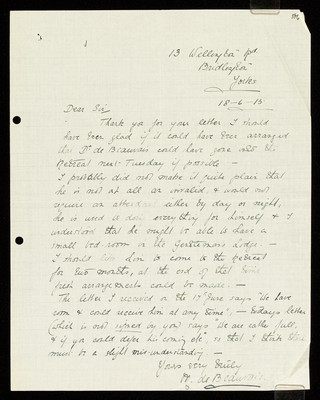 13 Wellington Rd
Bridlington
Yorks
18-6-15
Dear Sir
Thank you for your letter. I should
have been glad if it could have been arranged
that Dr de Beauvais could have gone into the
Retreat next Tuesday if possible –
I probably did not make it quite plain that
he is not at all an invalid & would not
require an attendant either by day or night,
he is used to doing everything for himself & I
understood that he might be able to have a
small bed-room in the Gentlemans Lodge –
I should like him to come to the Retreat
for two months, at the end of that time
fresh arrangements could be made –
The letter I received on the 17th June says "We have
room & could receive him at any time" – todays letter
(which is not signed by you) says "We are rather full,
& if you could defer his coming etc, so that I think there
must be a slight mis-understanding –
Yours very truly
de Beauvais